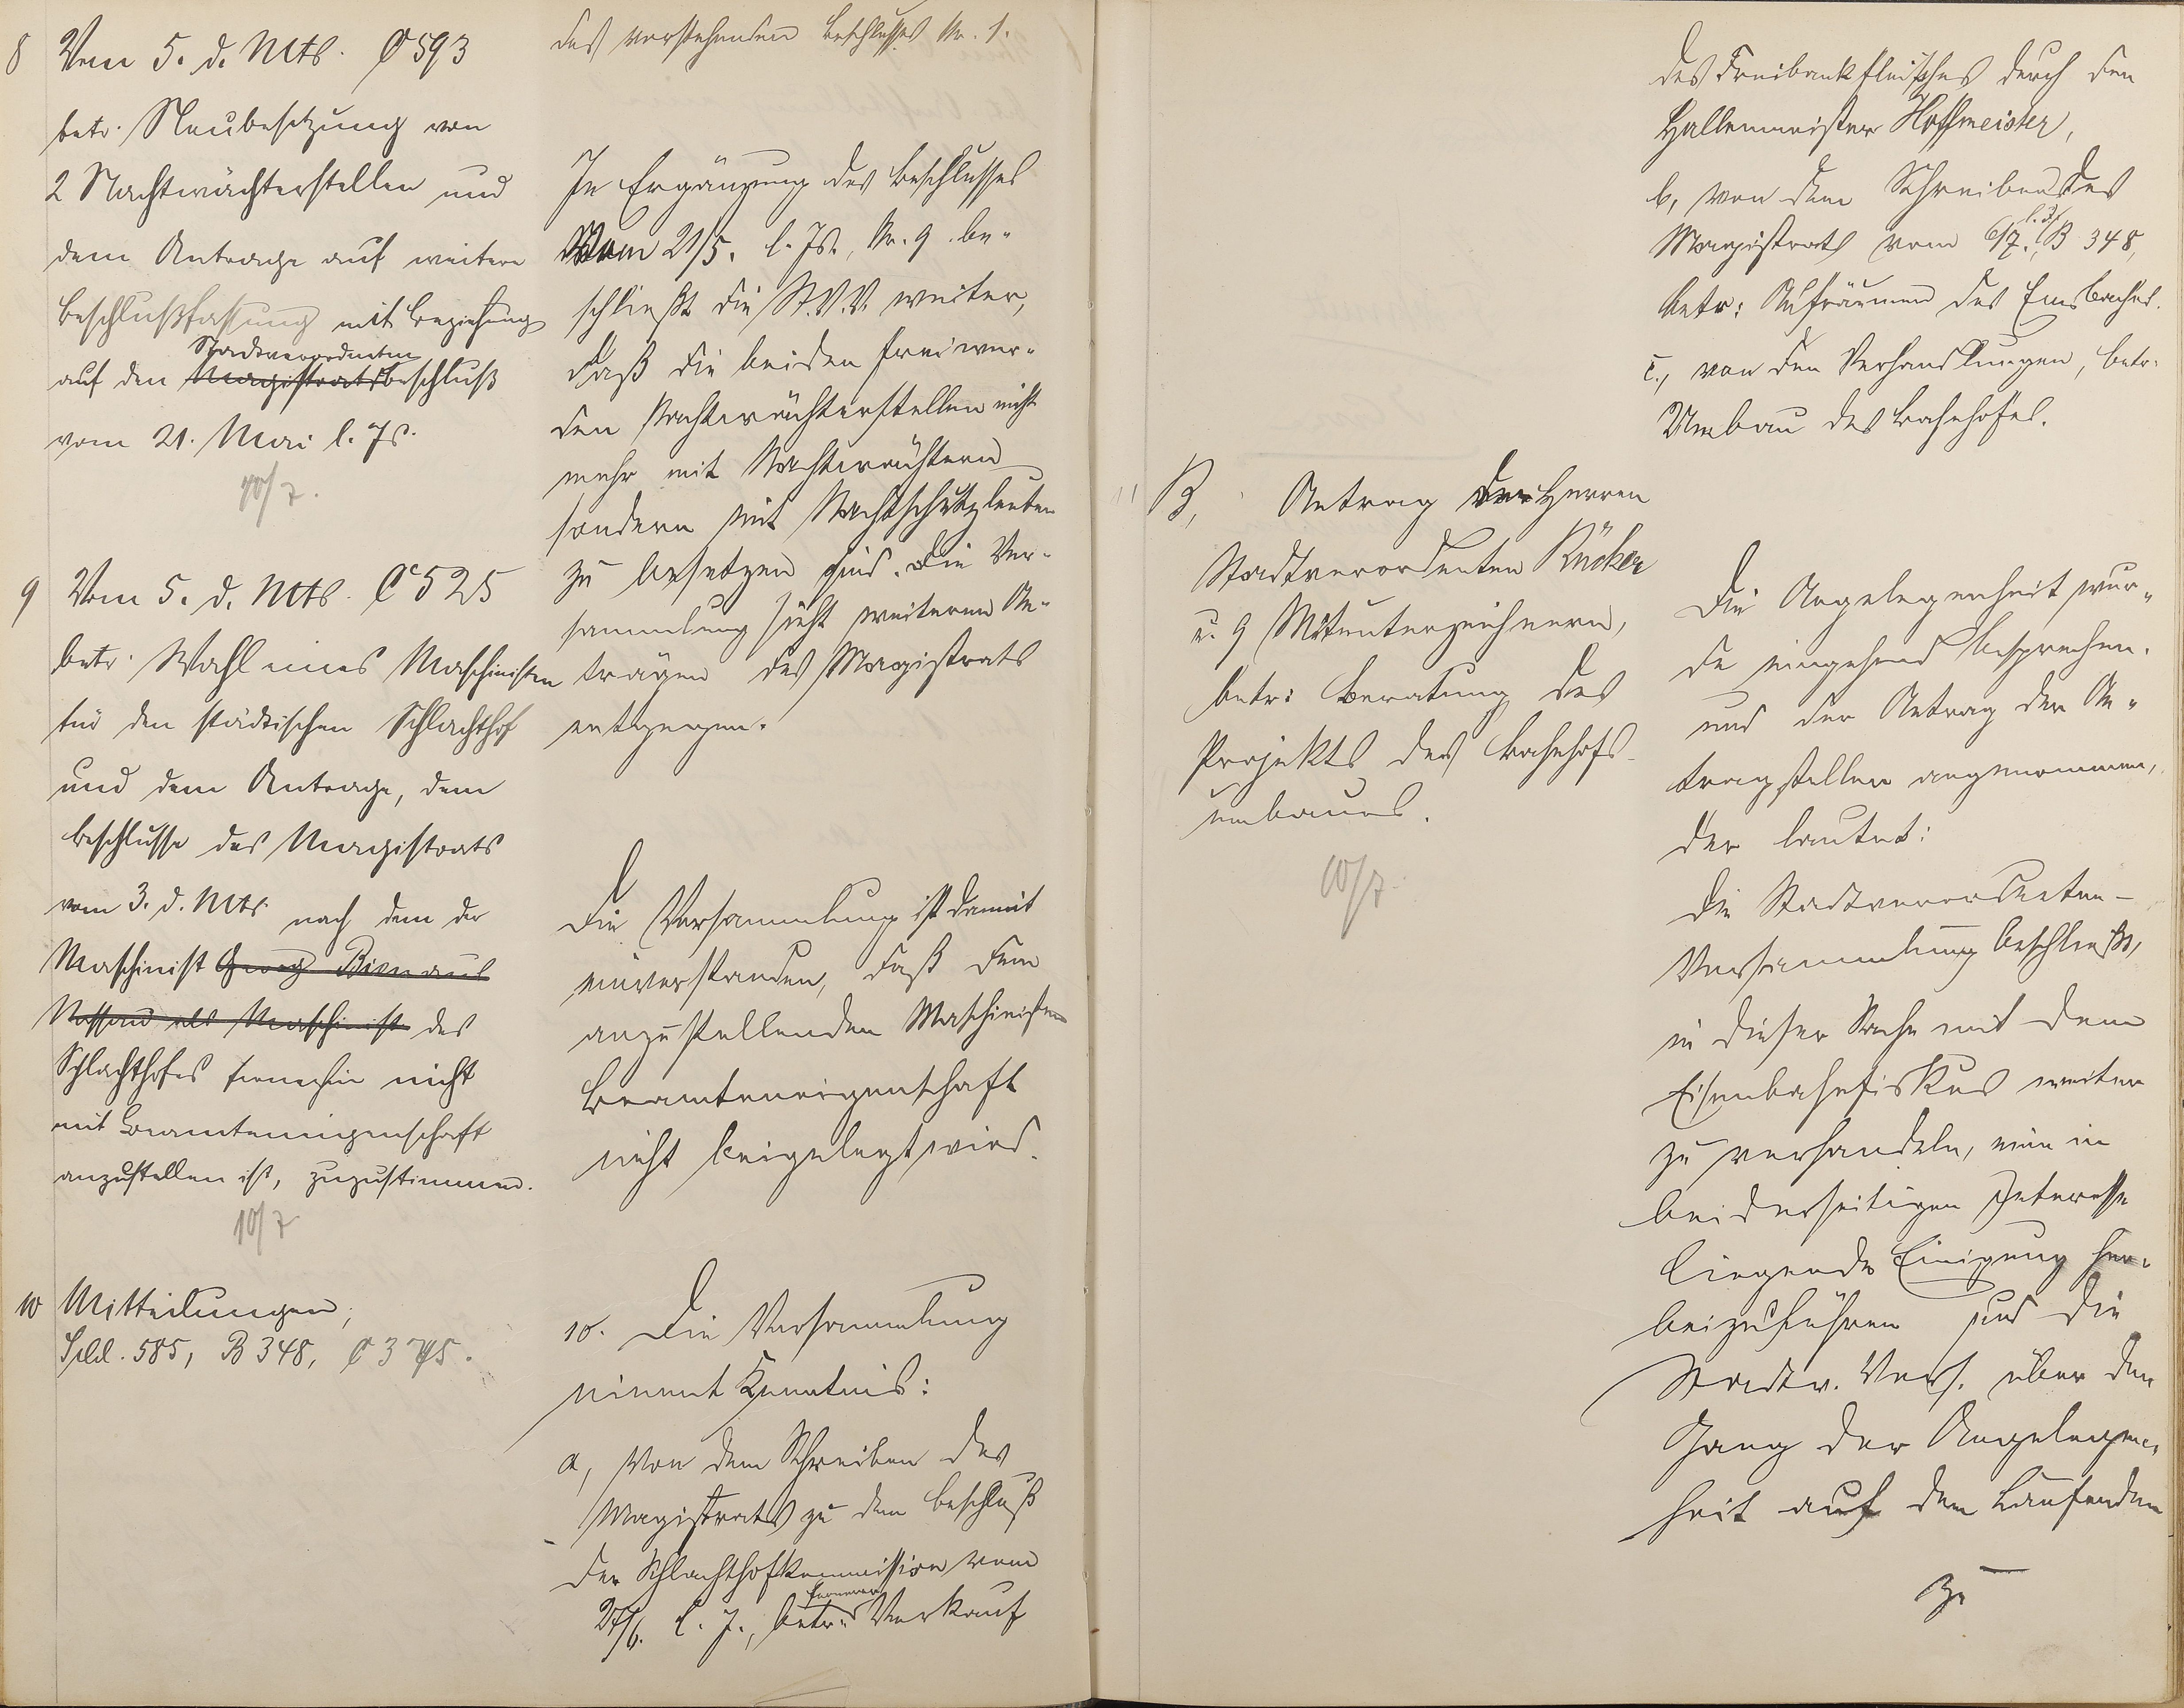 8 Vom 5. d. Mts. C 593
betr. Neubesetzung von
2 Nachtwächterstellen und
dem Antrage auf weitere
Beschlußfassung mit Beziehung
Stadtverordneten
auf den Magistratsbeschluß
vom 21. Mai l. Js.
10/7.
9 Vom 5. d. Mts. C 525
betr. Wahl eines Maschinisten
für den städtischen Schlachthof
und dem Antrage, dem
Beschlusse des Magistrats
vom 3. d. Mts. nach dem der
Maschinist Georg Bien aus
Nassau als Maschinist des
Schlachthofes fernerhin nicht
mit Beamteneigenschaft
anzustellen ist, zuzustimmen.
10/7
10 Mitteilungen,
585, B 348, C 375.
des vorstehenden Beschlusses Nr. 1.
In Ergänzung des Beschlusses
vom 21/5. l. Js., Nr. 9 be-
schließt die St.V.V. weiter,
daß die beiden freiwer-
den Nachtwächterstellen nicht
mehr mit Nachtwächtern
sondern mit Nachtschutzleuten
zu besetzen sind. Die Ver-
sammlung sieht weiteren An-
trägen des Magistrats
entgegen.
Die Versammlung ist damit
einverstanden, daß dem
anzustellenden Maschinisten
Beamteneigenschaft
nicht beigelegt wird.
10. Die Versammlung
nimmt Kenntnis:
a, von dem Schreiben des
Magistrats zu dem Beschluß
der Schlachthofkommission vom
ferneren
27/6. l. J., betr. Verkauf
des Freibankfleisches durch den
Hallenmeister Hoffmeister,
b, von dem Schreiben des
l. Js
Magistrats vom 6/7. B 348,
betr: Aufräumen des Emsbaches.
c., von den Verhandlungen, betr.
Umbau des Bahnhofes.
11 B, Antrag der Herren
Stadtverordneten Rücker
u. 9 Mitunterzeichnern,
betr: Beratung des
Projekts des Bahnhofs-
umbaues.
10/7.
Die Angelegenheit wur-
de eingehend besprochen.
und der Antrag der An-
tragsteller angenommen,
der lautet:
Die Stadtverordneten-
Versammlung beschließt,
in dieser Sache mit dem
Eisenbahnfiskus weiter
zu verhandeln, eine in
beiderseitigen Interesse
liegende Einigung her-
beizuführen und die
Stadtv. Vers. über den
Gang der Angelegen-
heit auf dem Laufenden
zu